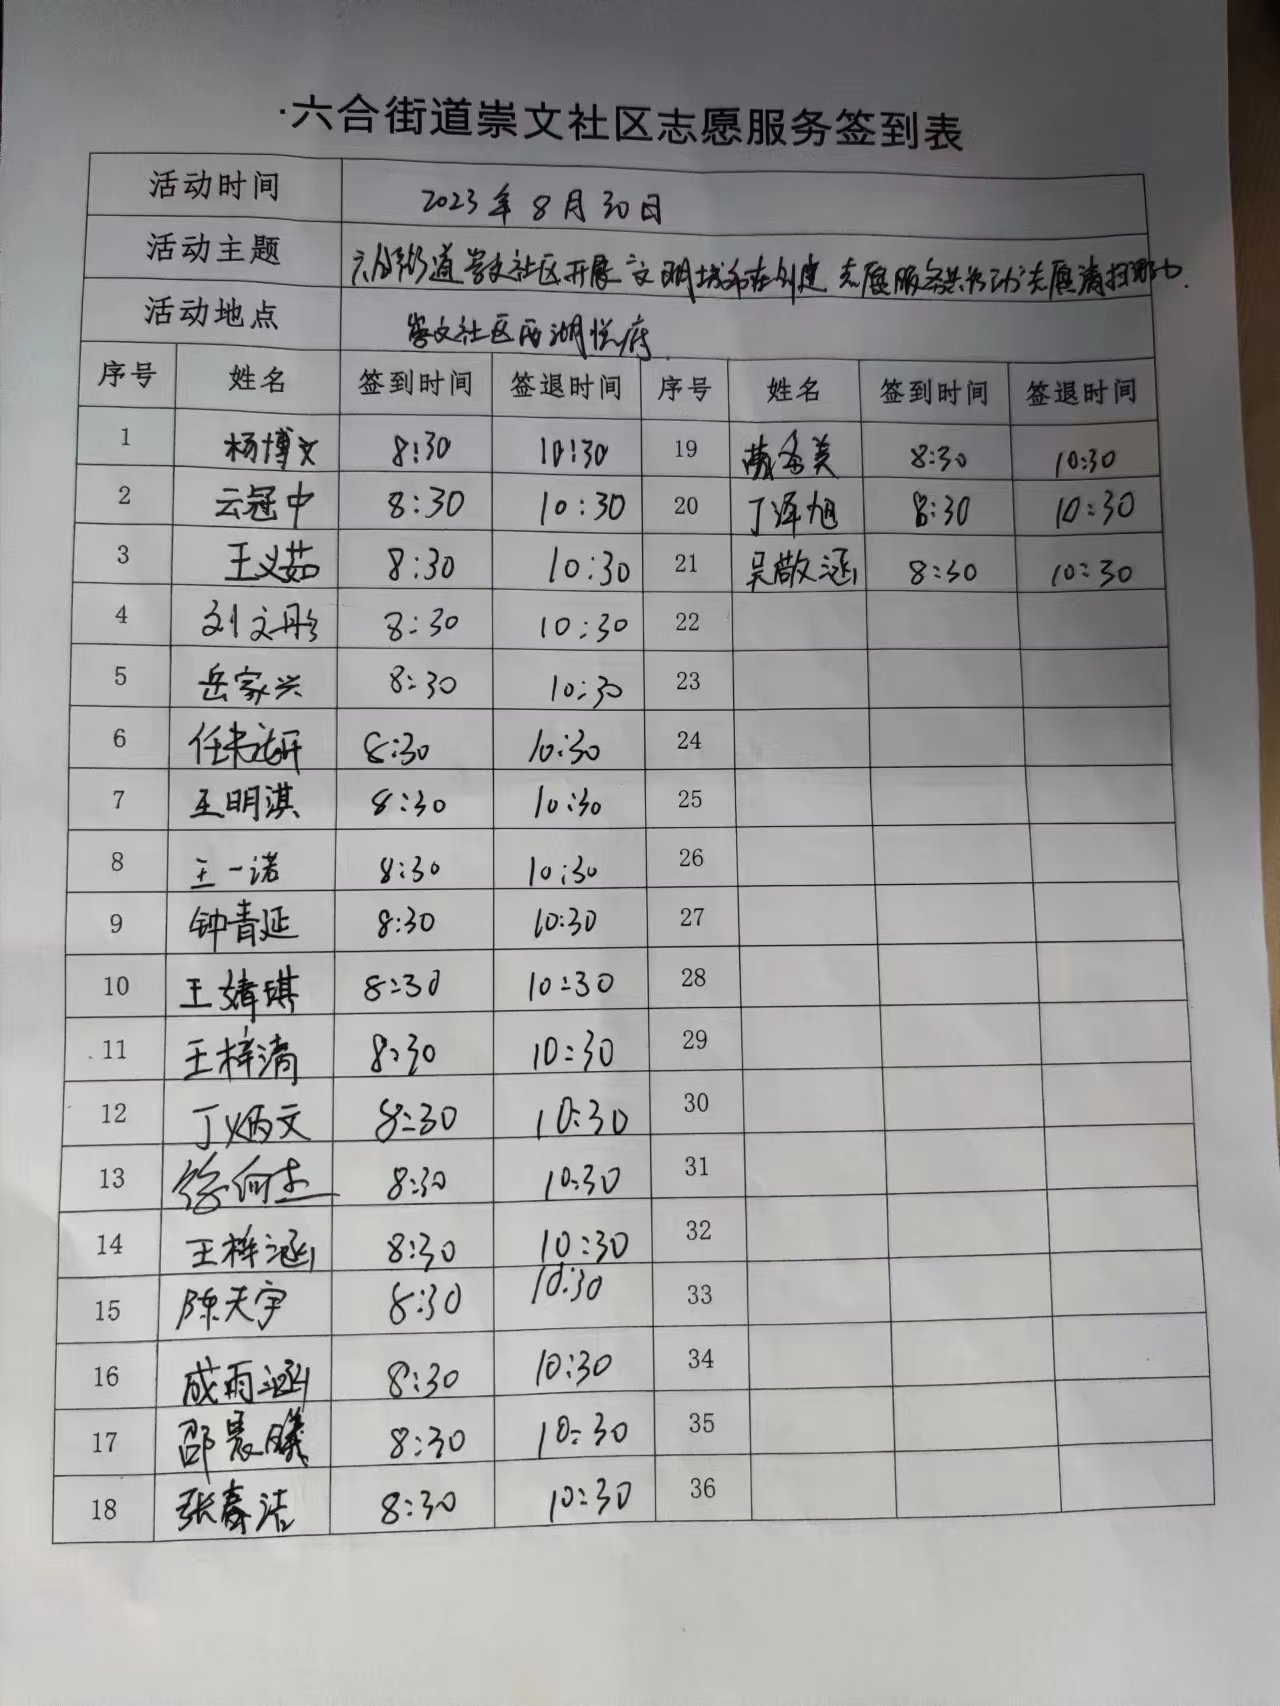 ·六合街道崇文社区志愿服务签到表
活动时间 2023年8月30日
活动主题 六合街道崇文社区开展"文明城市在创建 志愿服务共行动"志愿清扫活动.
活动地点 崇文社区西湖悦府.
序号 姓名 签到时间 签退时间 序号 姓名 签到时间 签退时间
1 杨博文 8:30 10:30 19 美 8:30 10:30
2 云冠中 8:30 10:30 20 丁泽旭 8:30 10:30
3 王义茹 8:30 10:30 21 吴敬涵 8:30 10:30
4 刘文彤 8:30 10:30 22
5 岳家兴 8:30 10:30 23
6 任 妍 8:30 10:30 24
7 王明淇 8:30 10:30 25
8 王一诺 8:30 10:30 26
9 钟青延 8:30 10:30 27
10 王婧琪 8:30 10:30 28
11 王梓清 8:30 10:30 29
12 丁炳文 8:30 10:30 30
13 徐何杰 8:30 10:30 31
14 王梓涵 8:30 10:30 32
15 陈天宇 8:30 10:30 33
16 成雨涵 8:30 10:30 34
17 邵晨曦 8:30 10:30 35
18 张春洁 8:30 10:30 36